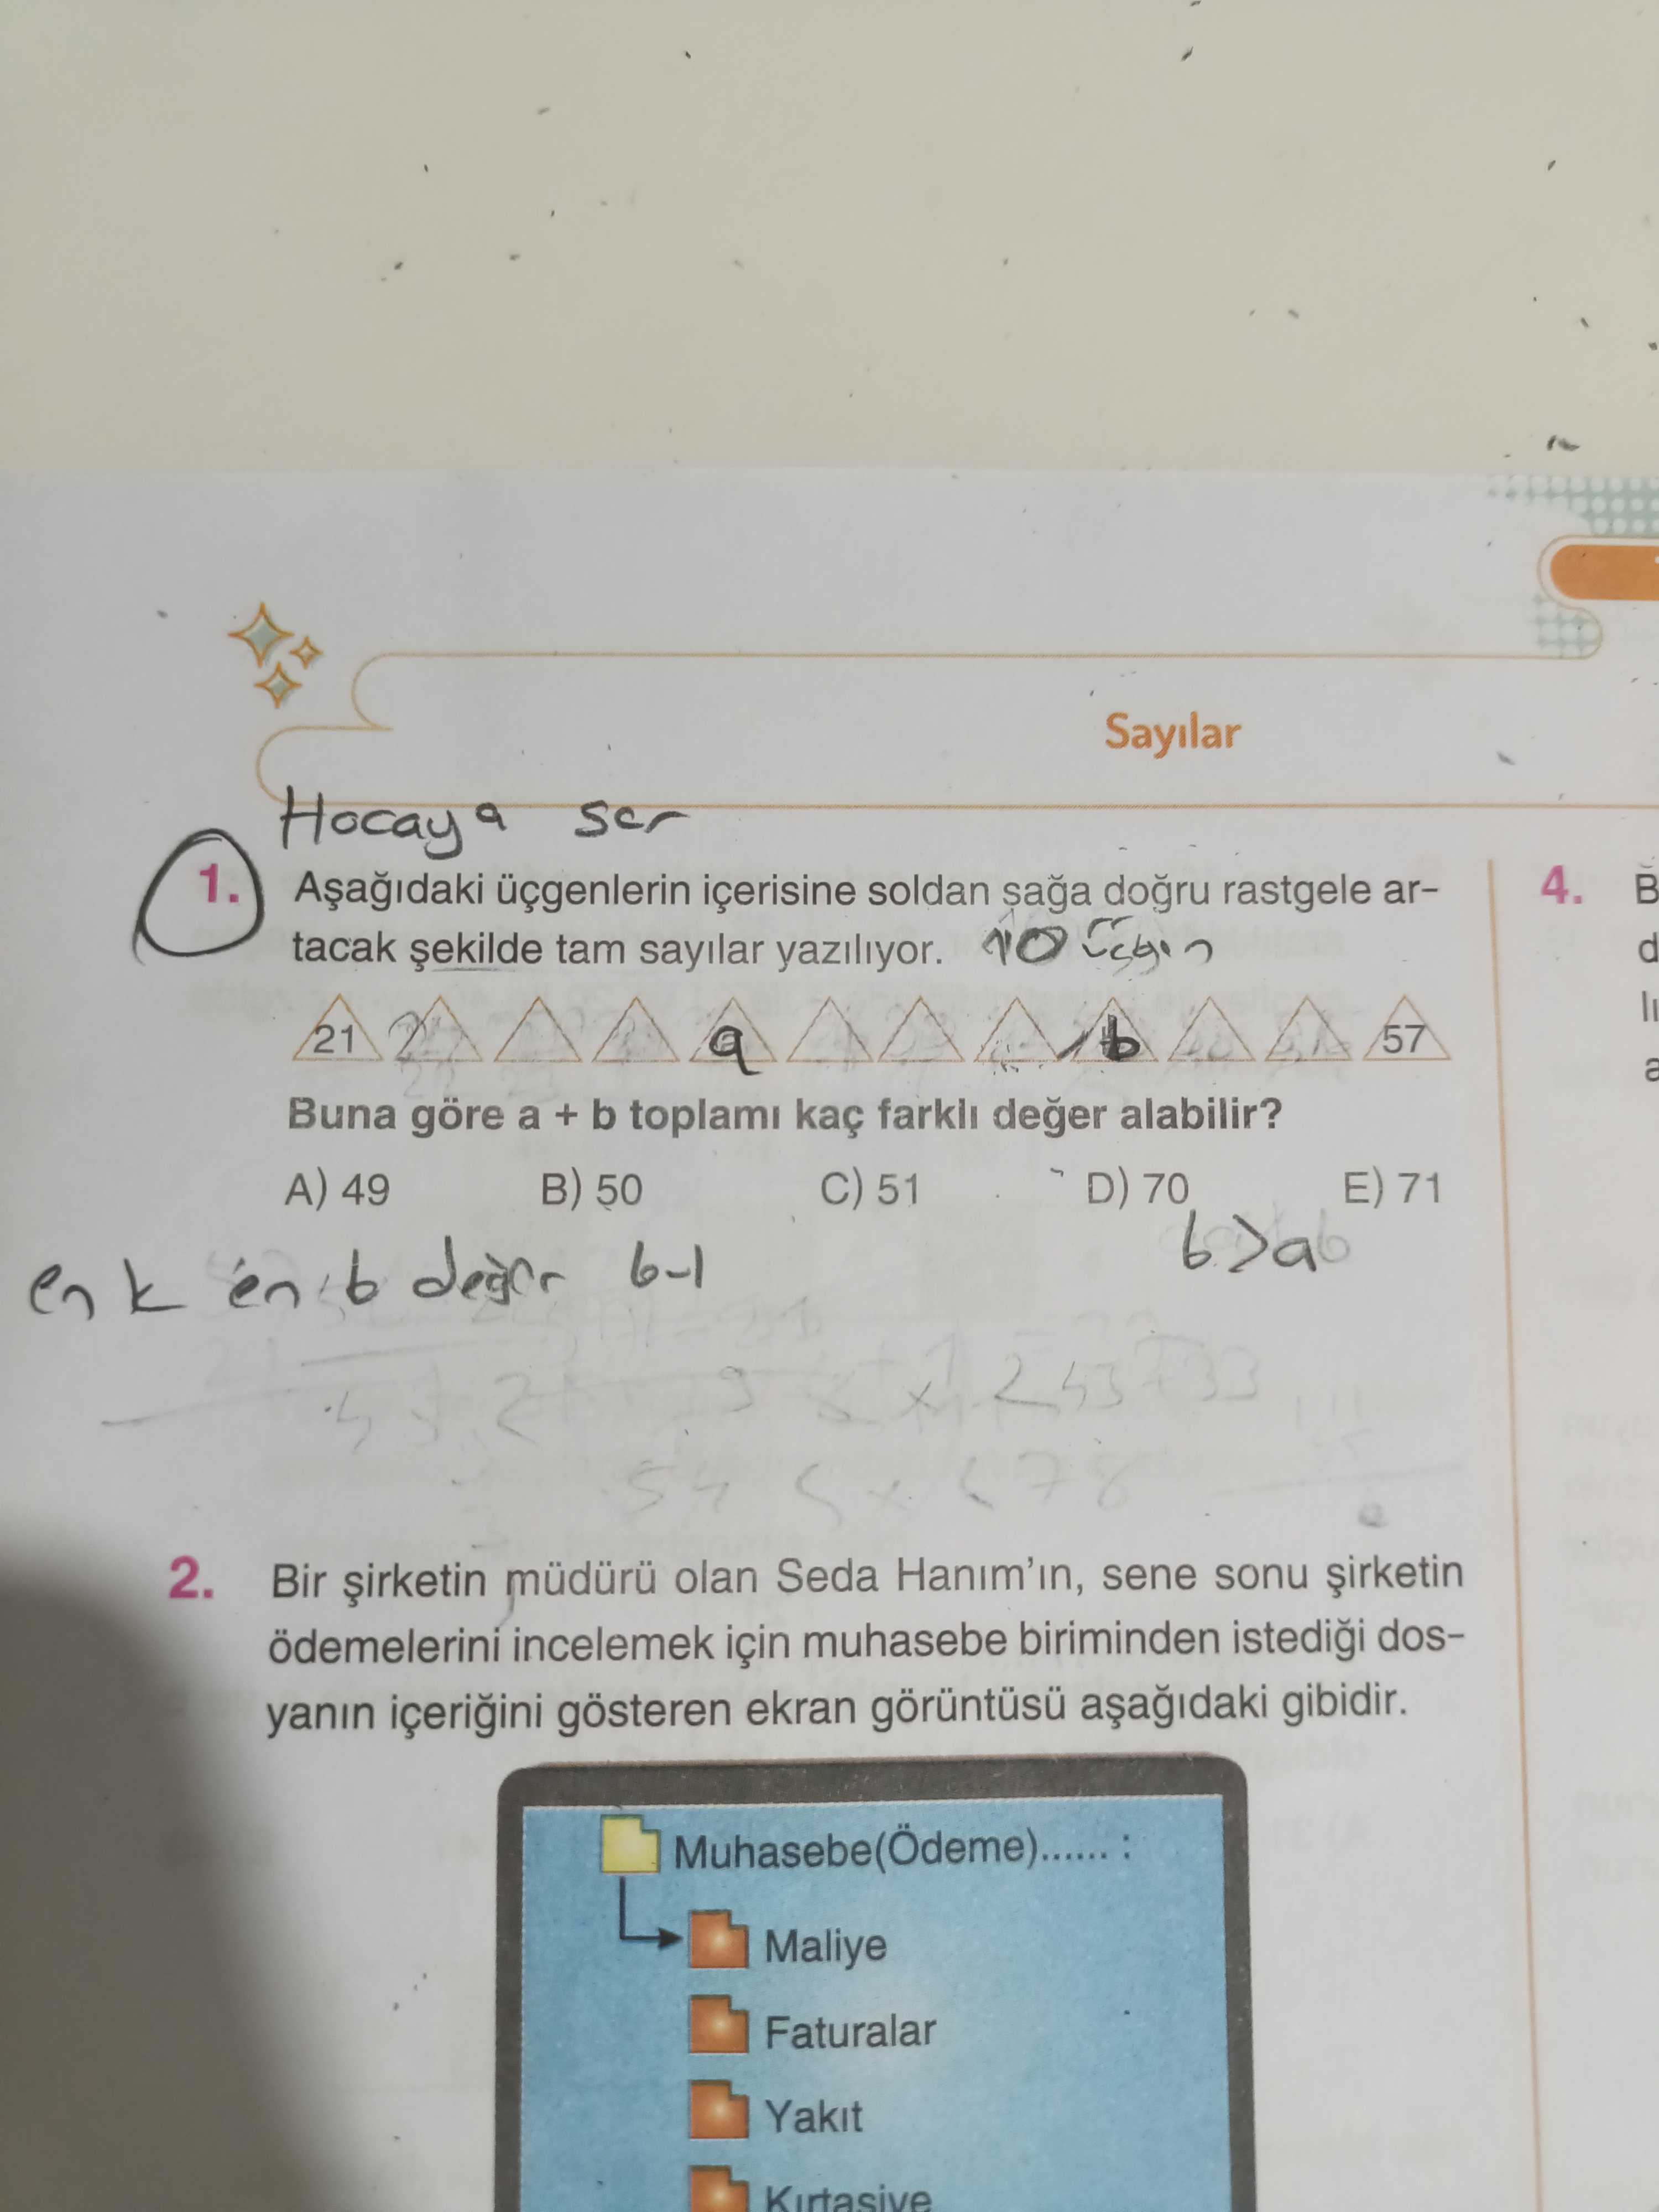 Sayılar
Hocaya sor
1. Aşağıdaki üçgenlerin içerisine soldan sağa doğru rastgele ar-
tacak şekilde tam sayılar yazılıyor. 10 üçgen
21 a b 57
Buna göre a + b toplamı kaç farklı değer alabilir?
A) 49 B) 50 C) 51 D) 70 E) 71
b>a
en k en b değer b-1
2. Bir şirketin müdürü olan Seda Hanım'ın, sene sonu şirketin
ödemelerini incelemek için muhasebe biriminden istediği dos-
yanın içeriğini gösteren ekran görüntüsü aşağıdaki gibidir.
Muhasebe(Ödeme)...... :
Maliye
Faturalar
Yakıt
Kırtasiye
4.